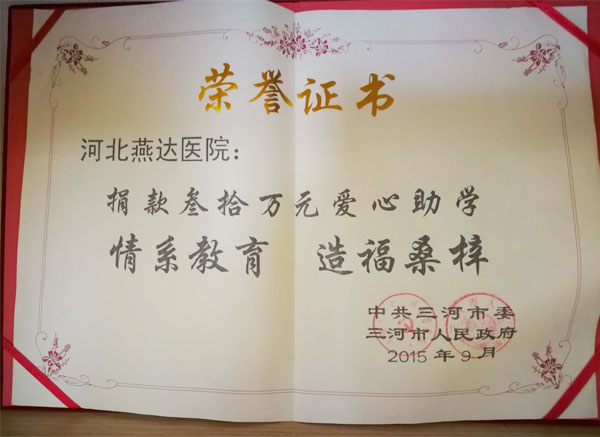 荣誉证书
河北燕达医院：
捐款叁拾万元爱心助学
情系教育 造福桑梓
中共三河市委
三河市人民政府
2015年9月